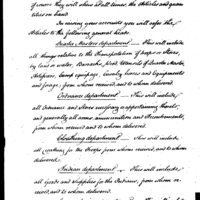 of course they will show at all times, the Articles and quan
tities on hand.
In making your accounts you will affix the
Articles to the following general heads.
Quarter Masters department — This will include
all things relative to the Transportation of troops or Stores,
by land or water, Barracks,
Artificers, Camp equipage, Cavalry horses and Equipments
and forage, from whom received, and to whom delivered
Ordnance department — This will include
all Ordnance and Stores necessary or appertaining thereto,
and generally all arms, ammunition and Accoutrements,
from whom received, and to whom delivered.
Cloathing department — This will include
all Cloathing for the Troops from whom received, and to whom
delivered.
Indian department — This will include
all Goods and Supplies for the Indians, from whom re
ceived, and to whom delivered.